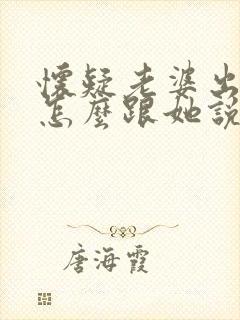 懷疑老婆出
怎麼跟她說
唐海霞